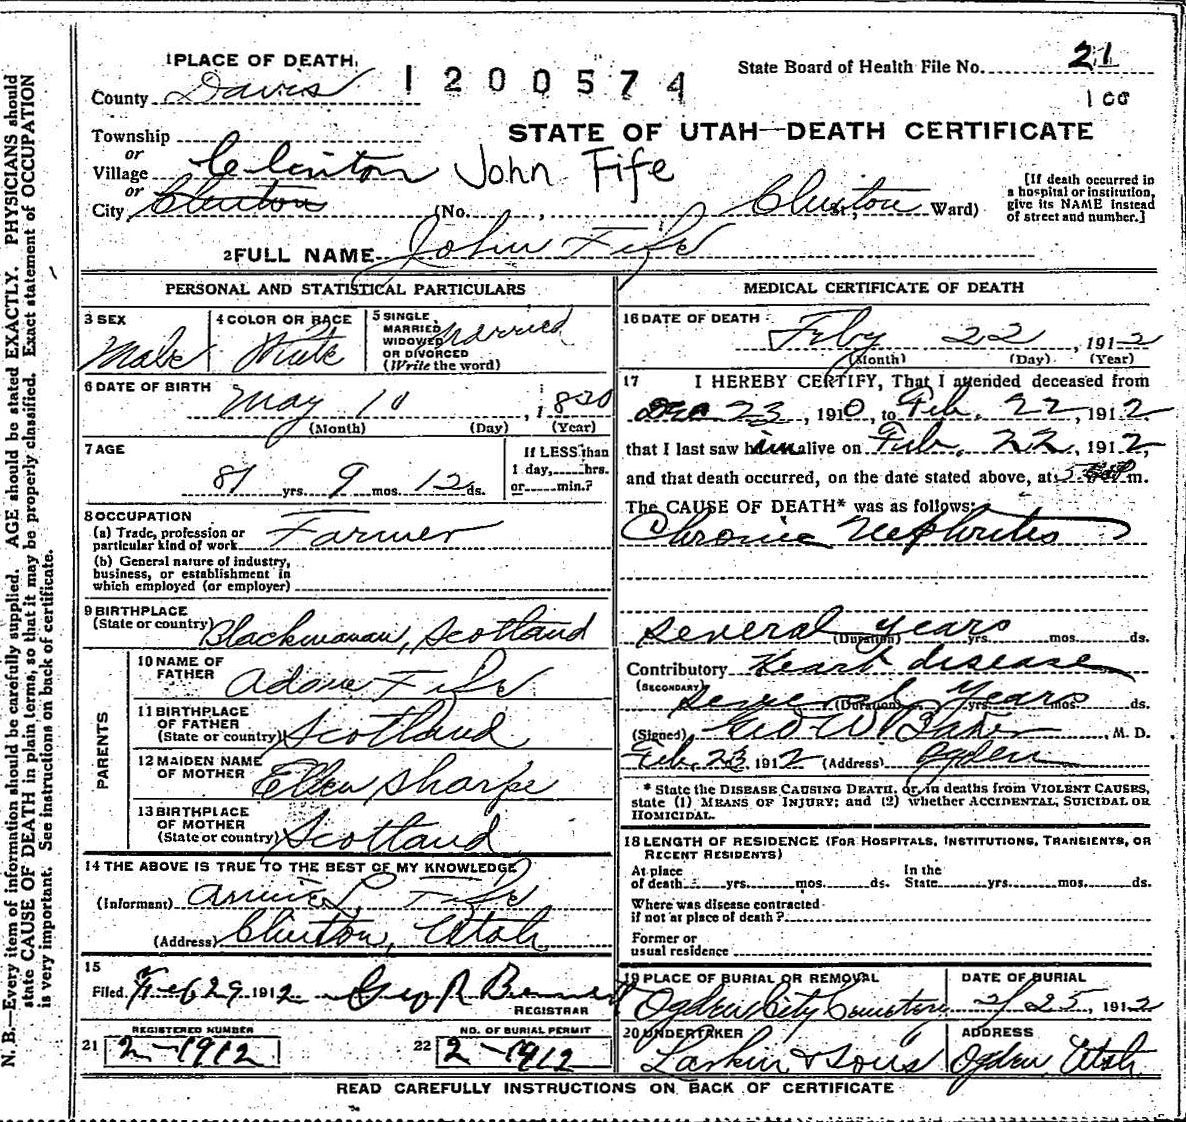 1 PLACE OF DEATH.
1200574
State Board of Health File No. 21
County Davis
100
STATE OF UTAH—DEATH CERTIFICATE
Township
or
Village Clinton John Fife
or
City Clinton (No. , St., Clinton Ward)
[If death occurred in
a hospital or institution,
give its NAME instead
of street and number.]
2 FULL NAME John Fife
PERSONAL AND STATISTICAL PARTICULARS
3 SEX Male
4 COLOR OR RACE White
5 SINGLE, MARRIED WIDOWED OR DIVORCED (Write the word) Married
6 DATE OF BIRTH
May 10, 1830
(Month) (Day) (Year)
7 AGE
81 yrs. 9 mos. 12 ds.
If LESS than
1 day, hrs.
or min.?
8 OCCUPATION
(a) Trade, profession or
particular kind of work Farmer
(b) General nature of industry,
business, or establishment in
which employed (or employer)
9 BIRTHPLACE
(State or country) Scotland
PARENTS
10 NAME OF
FATHER Adam Fife
11 BIRTHPLACE
OF FATHER
(State or country) Scotland
12 MAIDEN NAME
OF MOTHER Ellen Sharpe
13 BIRTHPLACE
OF MOTHER
(State or country) Scotland
14 THE ABOVE IS TRUE TO THE BEST OF MY KNOWLEDGE
(Informant) Fife
(Address) Clinton, Utah
15
Filed Feb 29 1912 Geo
REGISTRAR
REGISTERED NUMBER
21 2-1912
NO. OF BURIAL PERMIT
22 2-1912
MEDICAL CERTIFICATE OF DEATH
16 DATE OF DEATH
Feby 22, 1912
(Month) (Day) (Year)
17 I HEREBY CERTIFY, That I attended deceased from
Dec 23, 1910, to Feb. 22, 1912
that I last saw him alive on Feb. 22, 1912,
and that death occurred, on the date stated above, at 5 m.
The CAUSE OF DEATH* was as follows:
Chronic Nephritis
Several years
(Duration) yrs. mos. ds.
Contributory Heart disease
(SECONDARY)
Several years
(Duration) yrs. mos. ds.
(Signed) Geo W Baker, M. D.
Feb. 23 1912 (Address) Ogden
* State the DISEASE CAUSING DEATH, or, in deaths from VIOLENT CAUSES,
state (1) MEANS OF INJURY; and (2) whether ACCIDENTAL, SUICIDAL OR
HOMICIDAL.
18 LENGTH OF RESIDENCE (FOR HOSPITALS, INSTITUTIONS, TRANSIENTS, OR
RECENT RESIDENTS)
At place In the
of death yrs. mos. ds. State yrs. mos. ds.
Where was disease contracted
if not at place of death?
Former or
usual residence
19 PLACE OF BURIAL OR REMOVAL
Ogden City Cemetery
DATE OF BURIAL
2/25, 1912
20 UNDERTAKER
Larkin & Sons
ADDRESS
Ogden Utah
READ CAREFULLY INSTRUCTIONS ON BACK OF CERTIFICATE
N. B.—Every item of information should be carefully supplied. AGE should be stated EXACTLY. PHYSICIANS should
state CAUSE OF DEATH in plain terms, so that it may be properly classified. Exact statement of OCCUPATION
is very important. See instructions on back of certificate.